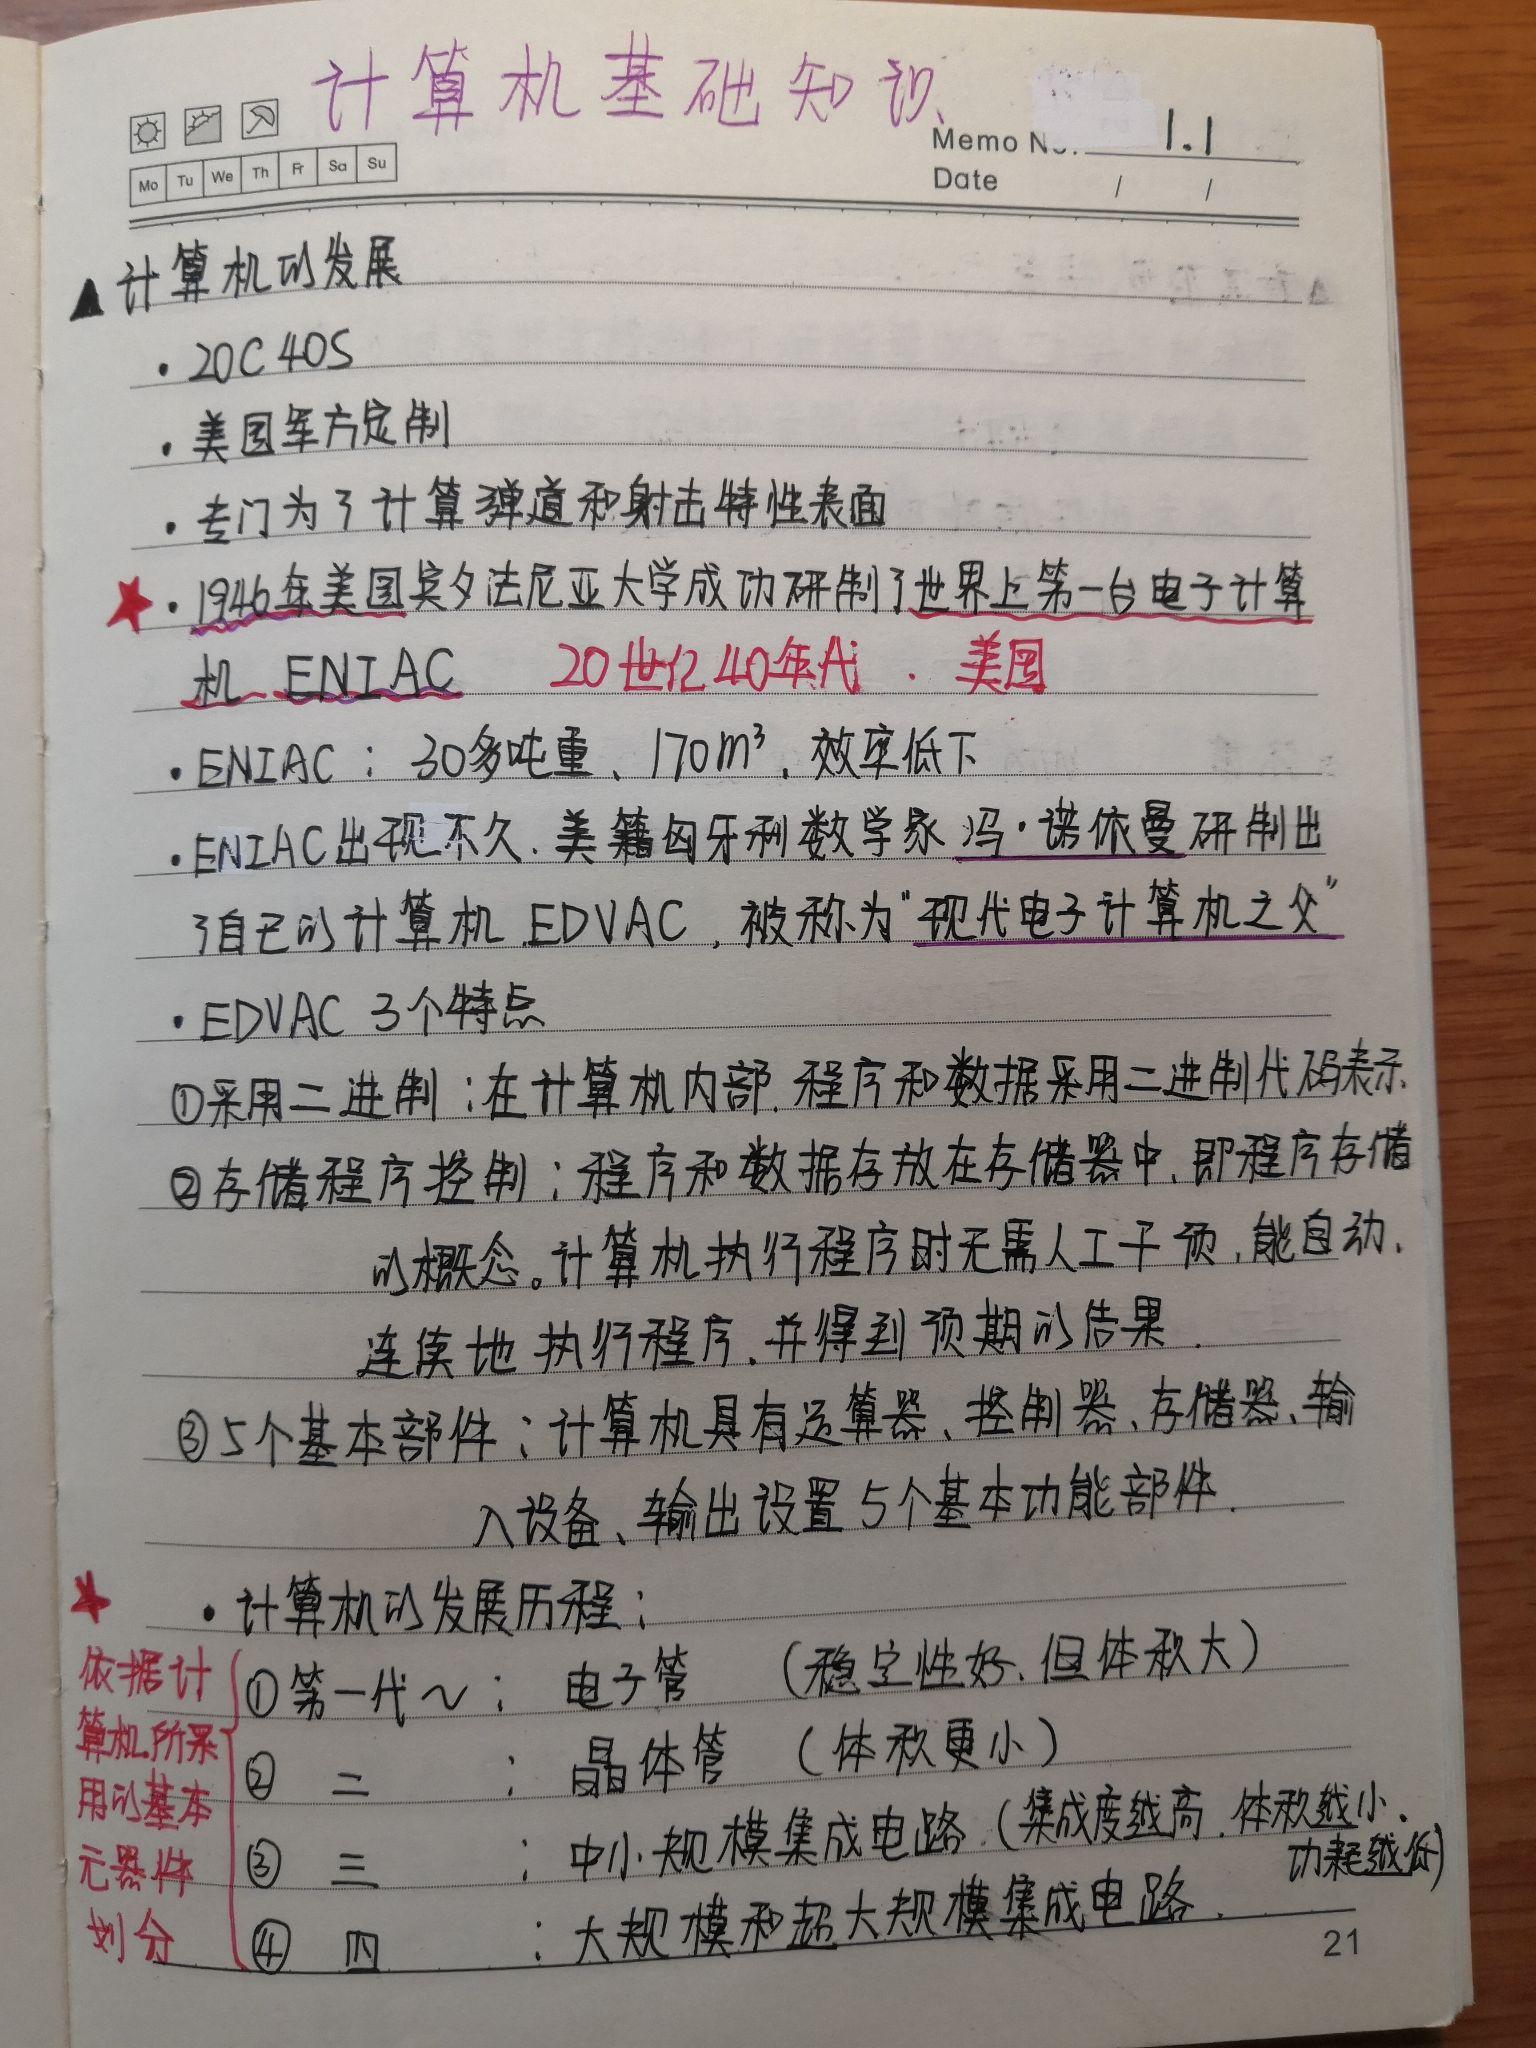 计算机基础知识
Memo No. 1.1
Mo Tu We Th Fr Sa Su
Date / /
▲计算机的发展
·20C 40S
·美国军方定制
·专门为了计算弹道和射击特性表面
★·1946年美国宾夕法尼亚大学成功研制了世界上第一台电子计算
机 ENIAC 20世亿40年代 . 美国
·ENIAC: 30多吨重、170m³,效率低下
·ENIAC出现不久,美籍匈牙利数学家冯·诺依曼研制出
了自己的计算机EDVAC,被称为"现代电子计算机之父"
·EDVAC 3个特点
①采用二进制:在计算机内部,程序和数据采用二进制代码表示
②存储程序控制:程序和数据存放在存储器中,即程序存储
的概念。计算机执行程序时无需人工干预,能自动、
连续地执行程序,并得到预期的结果.
③5个基本部件:计算机具有运算器、控制器、存储器、输
入设备、输出设置5个基本功能部件.
★ ·计算机的发展历程:
依据计
算机所采
用的基本
元器件
划分
①第一代~: 电子管 (稳定性好、但体积大)
② 二 : 晶体管 (体积更小)
③ 三 : 中小规模集成电路 (集成度越高,体积越小、
功耗越低)
④ 四 : 大规模和超大规模集成电路.
21